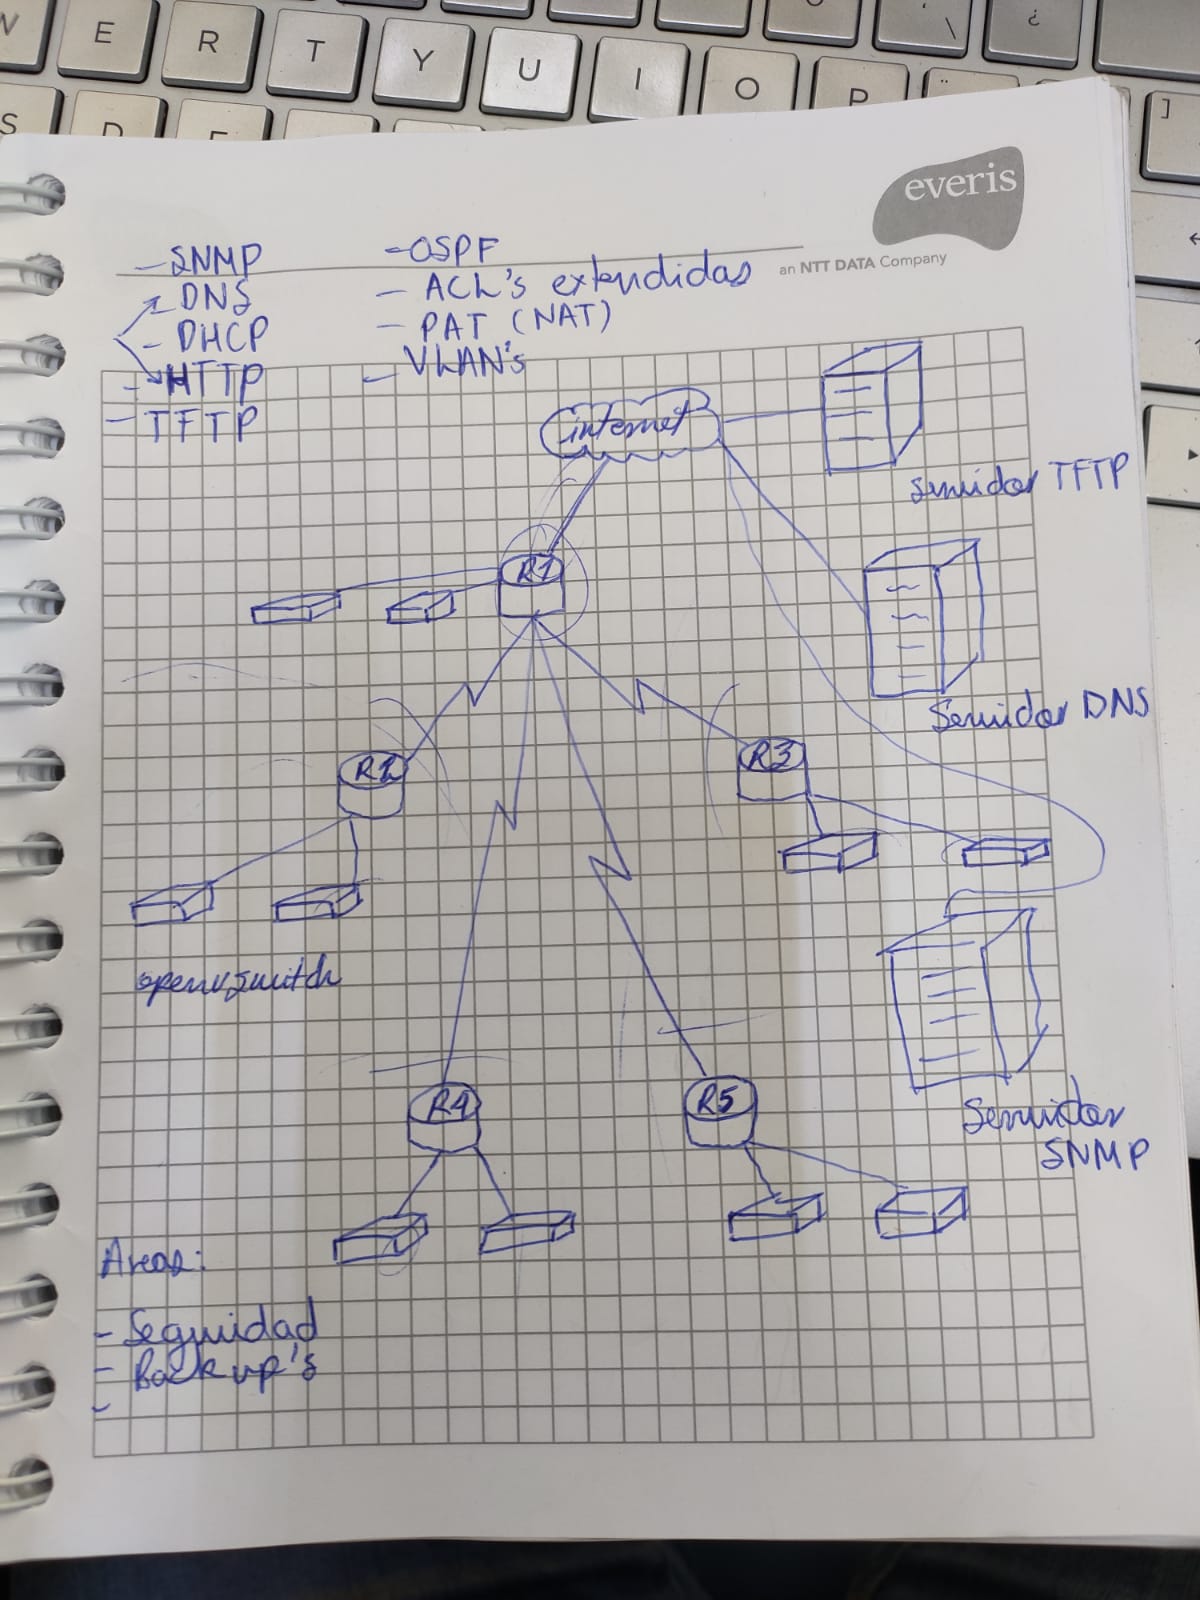 W E R T Y U I O P
S D F
¿
]
everis
an NTT DATA Company
- SNMP
- DNS
- DHCP
- HTTP
- TFTP
- OSPF
- ACL's extendidas
- PAT (NAT)
- VLAN's
internet
Servidor TFTP
R1
Servidor DNS
R2
R3
openvswitch
R4
R5
Servidor
SNMP
Areas:
- Seguridad
- Backup's
-